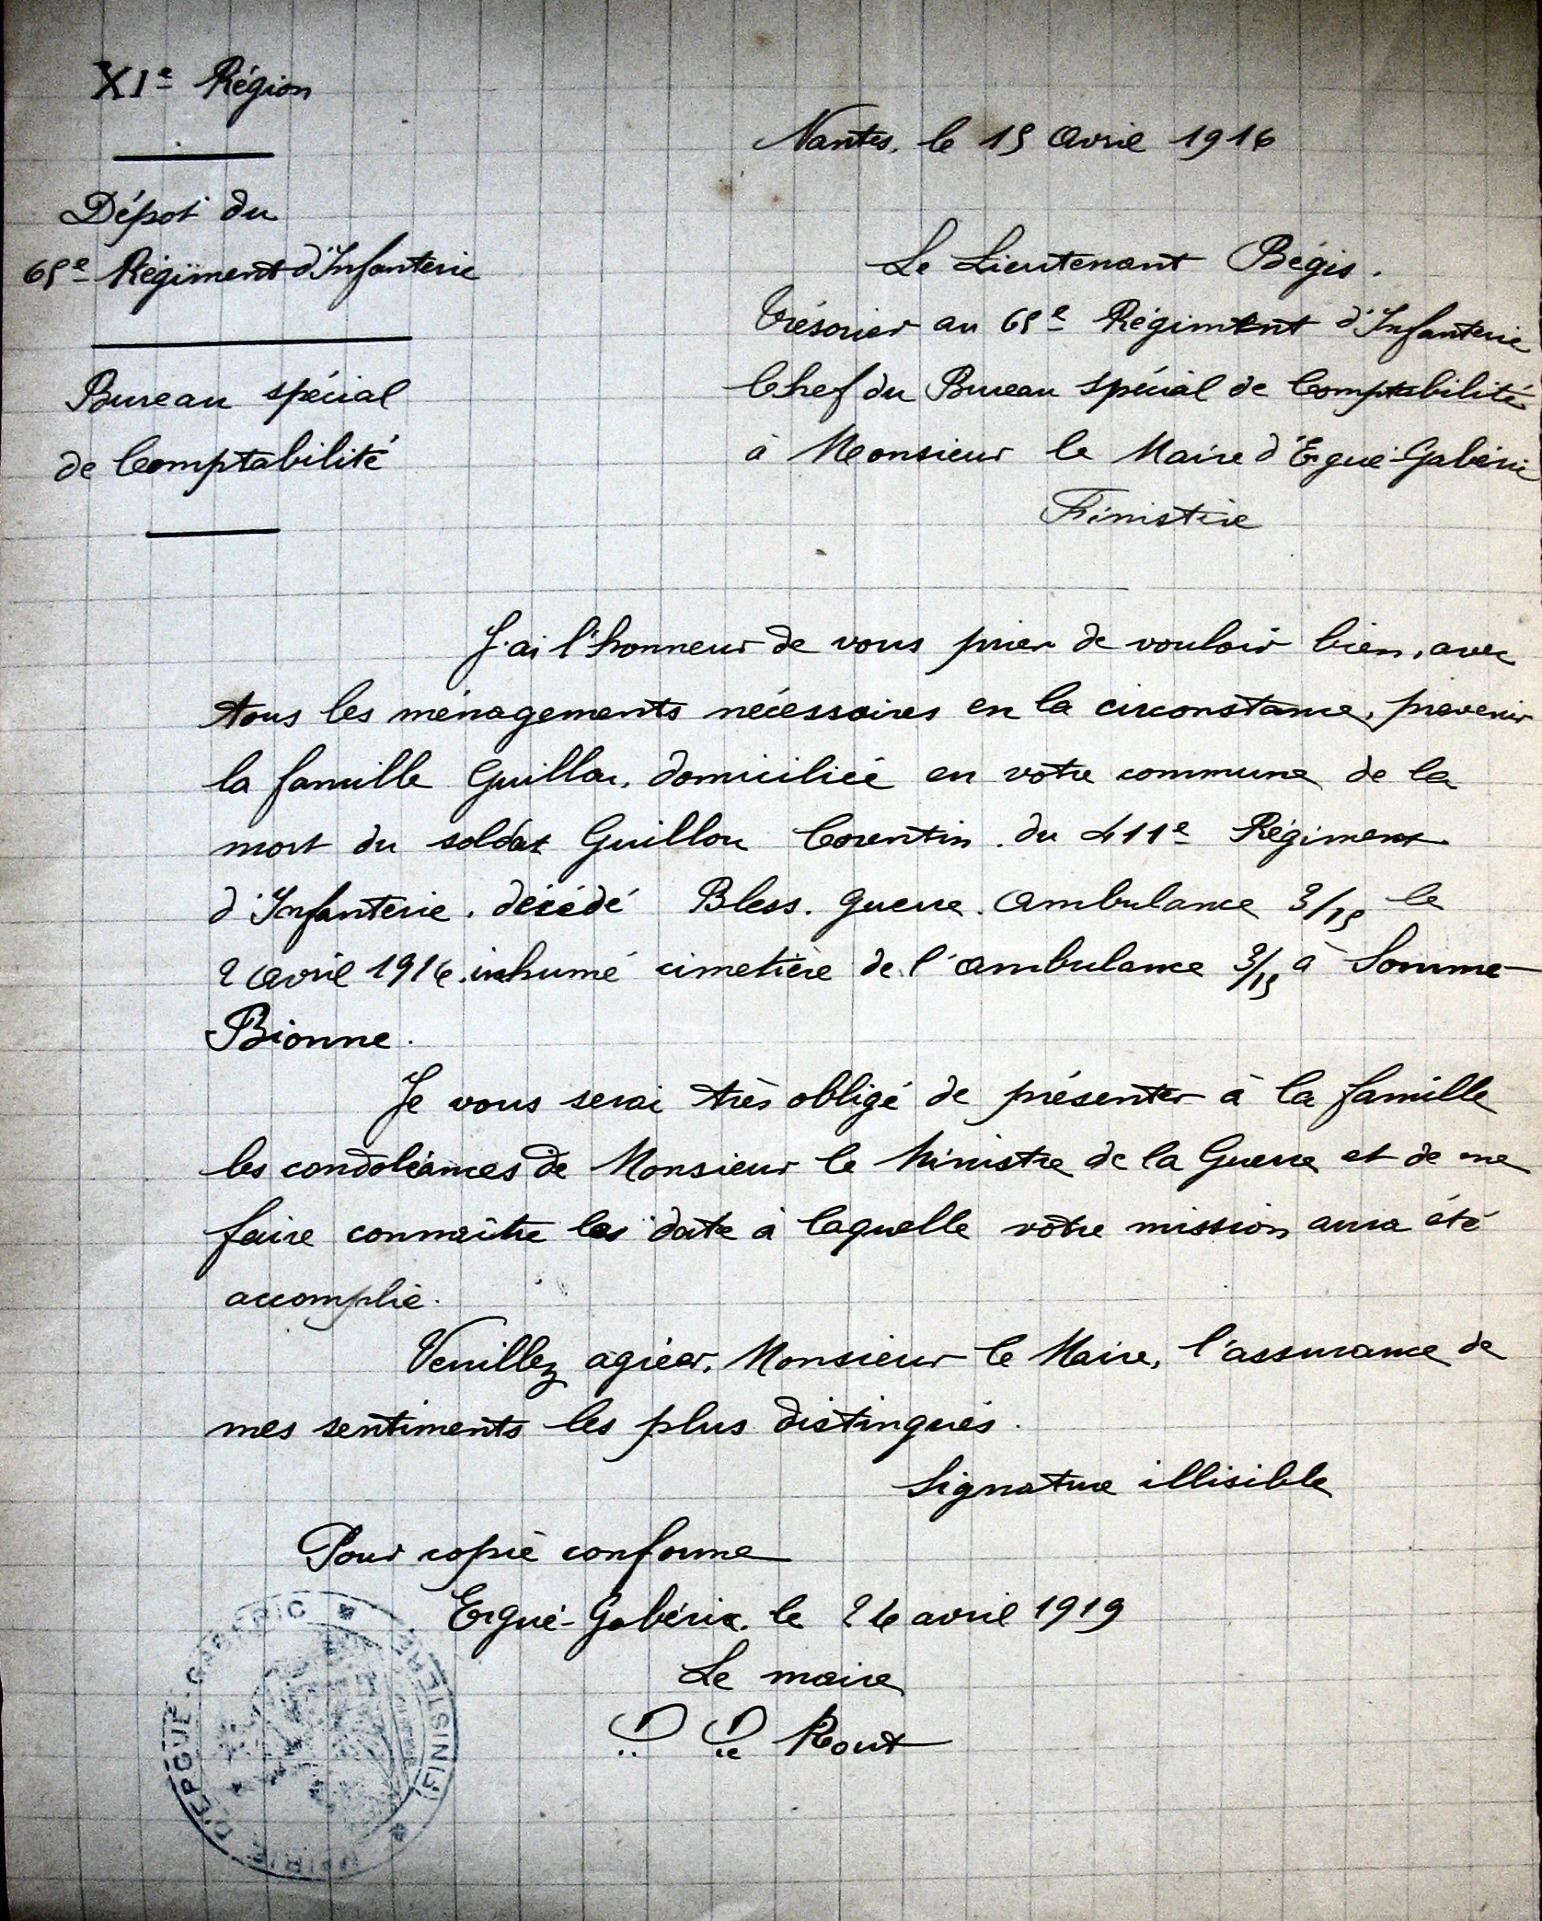 XIe Région
Dépot du
65e Régiment d'Infanterie
Bureau spécial
de Comptabilité
Nantes, le 15 Avril 1916
Le Lieutenant Bégis.
Trésorier au 65e Régiment d'Infanterie
Chef du Bureau Spécial de Comptabilité
à Monsieur le Maire d'Ergué-Gabéric
Finistère
J'ai l'honneur de vous prier de vouloir bien, avec
tous les ménagements nécessaires en la circonstance, prévenir
la famille Guillou, domiciliée en votre commune de la
mort du soldat Guillou Corentin. du 411e Régiment
d'Infanterie. décédé Bless. guerre. Ambulance 3/15 le
2 Avril 1916. inhumé cimetière de l'ambulance 3/15 à Somme-
Bionne.
Je vous serai très obligé de présenter à la famille
les condoléances de Monsieur le Ministre de la Guerre et de me
faire connaître la date à laquelle votre mission aura été
accomplie.
Veuillez agréer, Monsieur le Maire, l'assurance de
mes sentiments les plus distingués.
Signature illisible
Pour copie conforme
Ergué-Gabéric. le 26 avril 1919
Le maire
Rout
MAIRIE D'ERGUÉ-GABÉRIC
(FINISTÈRE)